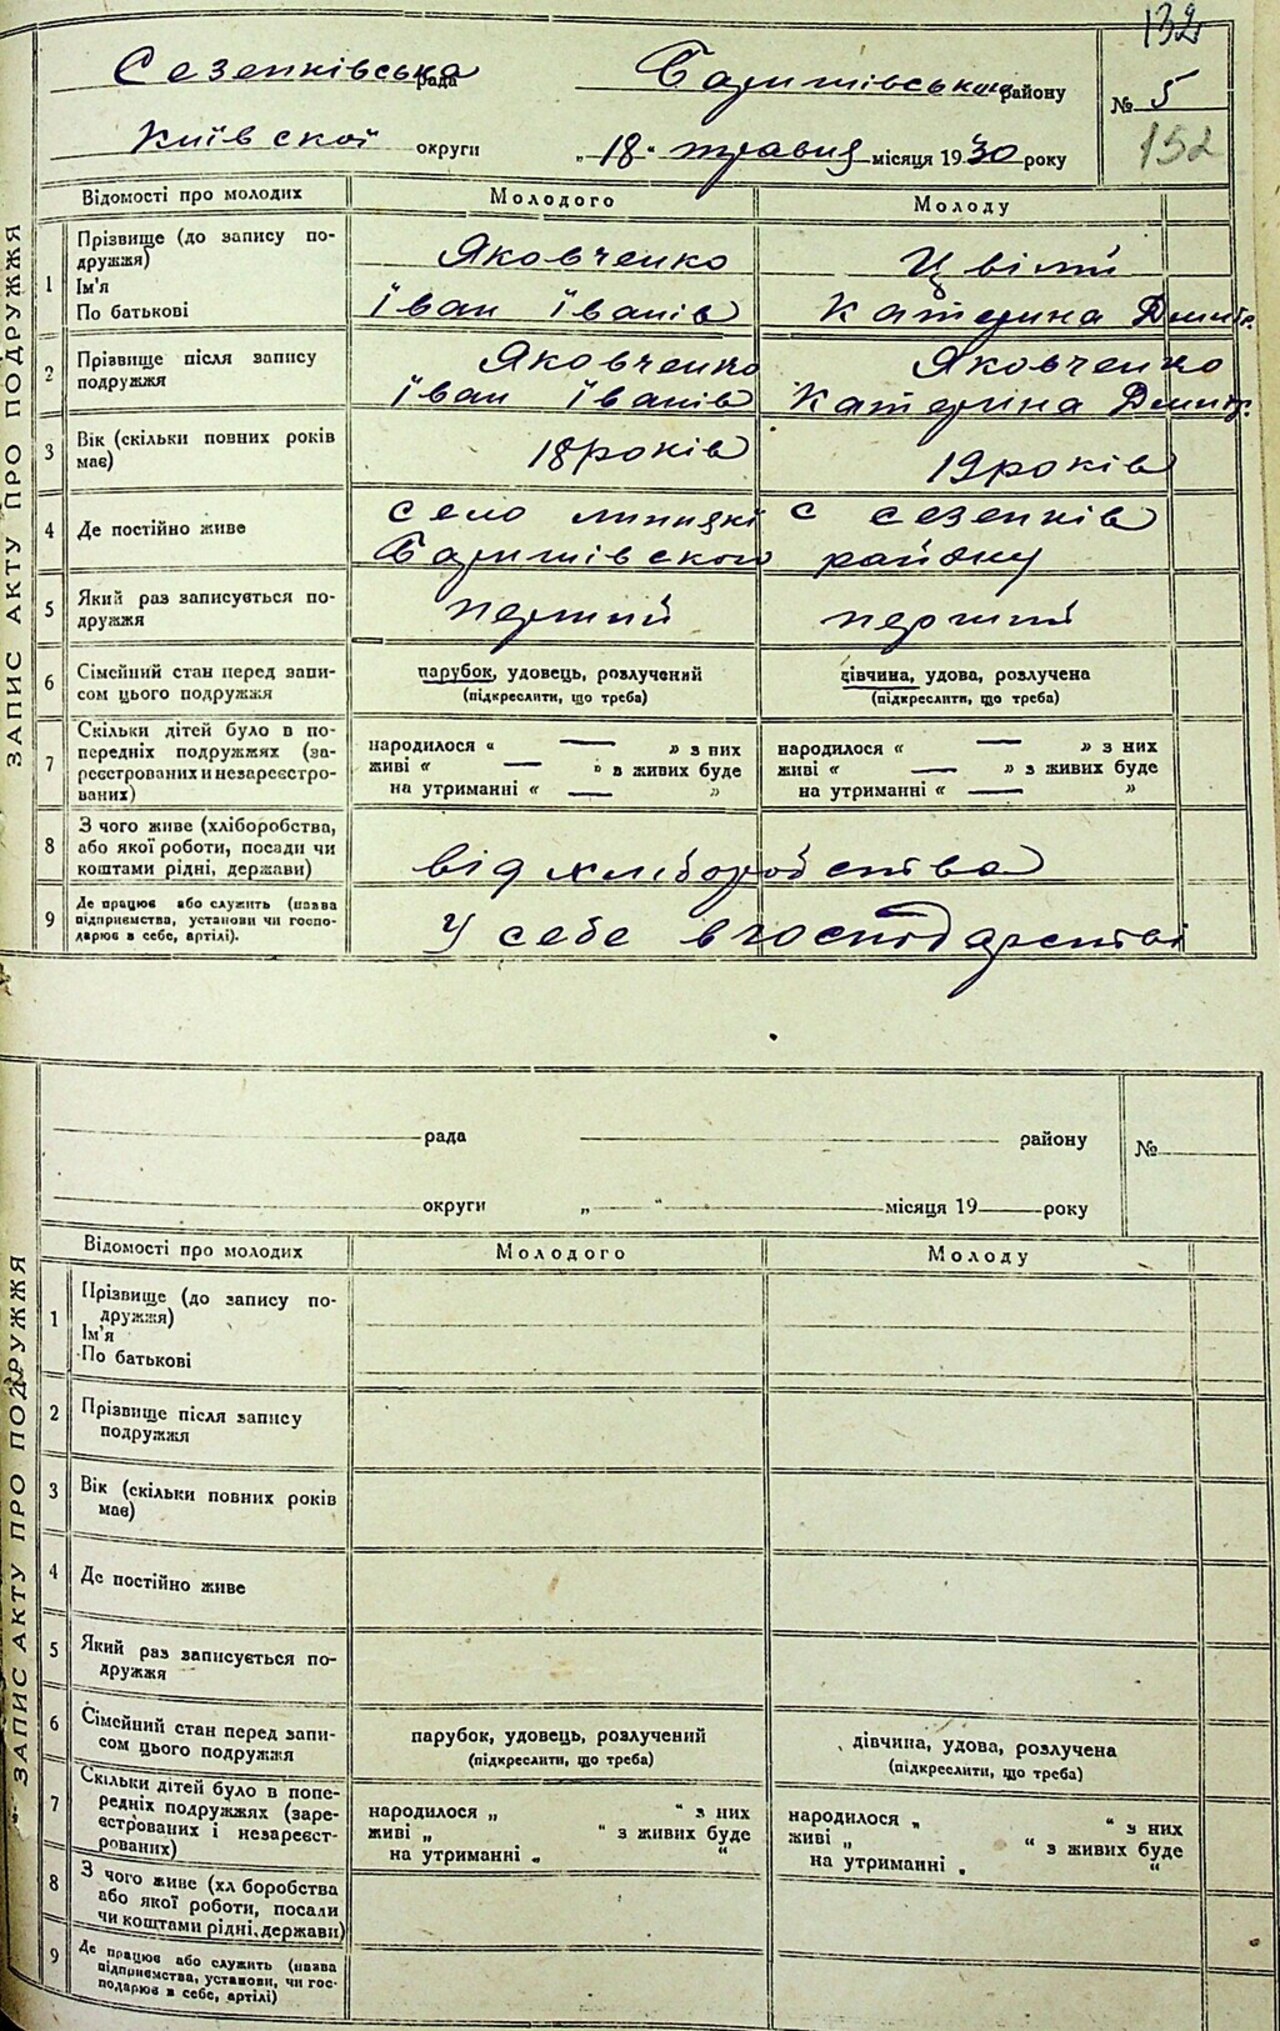 132
Сезенківська рада Баришівського району № 5
Київскої округи „ 18 “ травня місяця 1930 року
152
ЗАПИС АКТУ ПРО ПОДРУЖЖЯ
Відомості про молодих Молодого Молоду
1 Прізвище (до запису по-
дружжя) Яковченко
Ім'я
По батькові Їван Їванів Катерина Дмитр.
2 Прізвище після запису Яковченко Яковченко
подружжя Їван Їванів Катеріна Дмитр.
3 Вік (скільки повних років
має) 18 років 19 років
4 Де постійно живе село Липняки с Сезенків
Баришівского району
5 Який раз записується по-
дружжя перший перший
6 Сімейний стан перед запи- парубок, удовець, розлучений дівчина, удова, розлучена
сом цього подружжя (підкреслити, що треба) (підкреслити, що треба)
7 Скільки дітей було в по-
передніх подружжях (за- народилося « — » з них народилося « — » з них
реєстрованих и незареєстро- живі « — » з живих буде живі « — » з живих буде
ваних) на утриманні « — » на утриманні « — »
8 З чого живе (хліборобства,
або якої роботи, посади чи
коштами рідні, держави) від хліборобства
9 Де працює або служить (назва
підприємства, установи чи госпо-
дарює в себе, артілі). У себе в господарстві
рада району №
округи „ “ місяця 19 року
ЗАПИС АКТУ ПРО ПОДРУЖЖЯ
Відомості про молодих Молодого Молоду
1 Прізвище (до запису по-
дружжя)
Ім'я
По батькові
2 Прізвище після запису
подружжя
3 Вік (скільки повних років
має)
4 Де постійно живе
5 Який раз записується по-
дружжя
6 Сімейний стан перед запи- парубок, удовець, розлучений дівчина, удова, розлучена
сом цього подружжя (підкреслити, що треба) (підкреслити, що треба)
7 Скільки дітей було в попе-
редніх подружжях (заре- народилося „ “ з них народилося „ “ з них
єстрованих і незареєст- живі „ “ з живих буде живі „ “ з живих буде
рованих) на утриманні „ “ на утриманні „ “
8 З чого живе (хл боробства
або якої роботи, посали
чи коштами рідні, держави)
9 Де працює або служить (назва
підприємства, установи, чи гос-
подарює в себе, артілі)